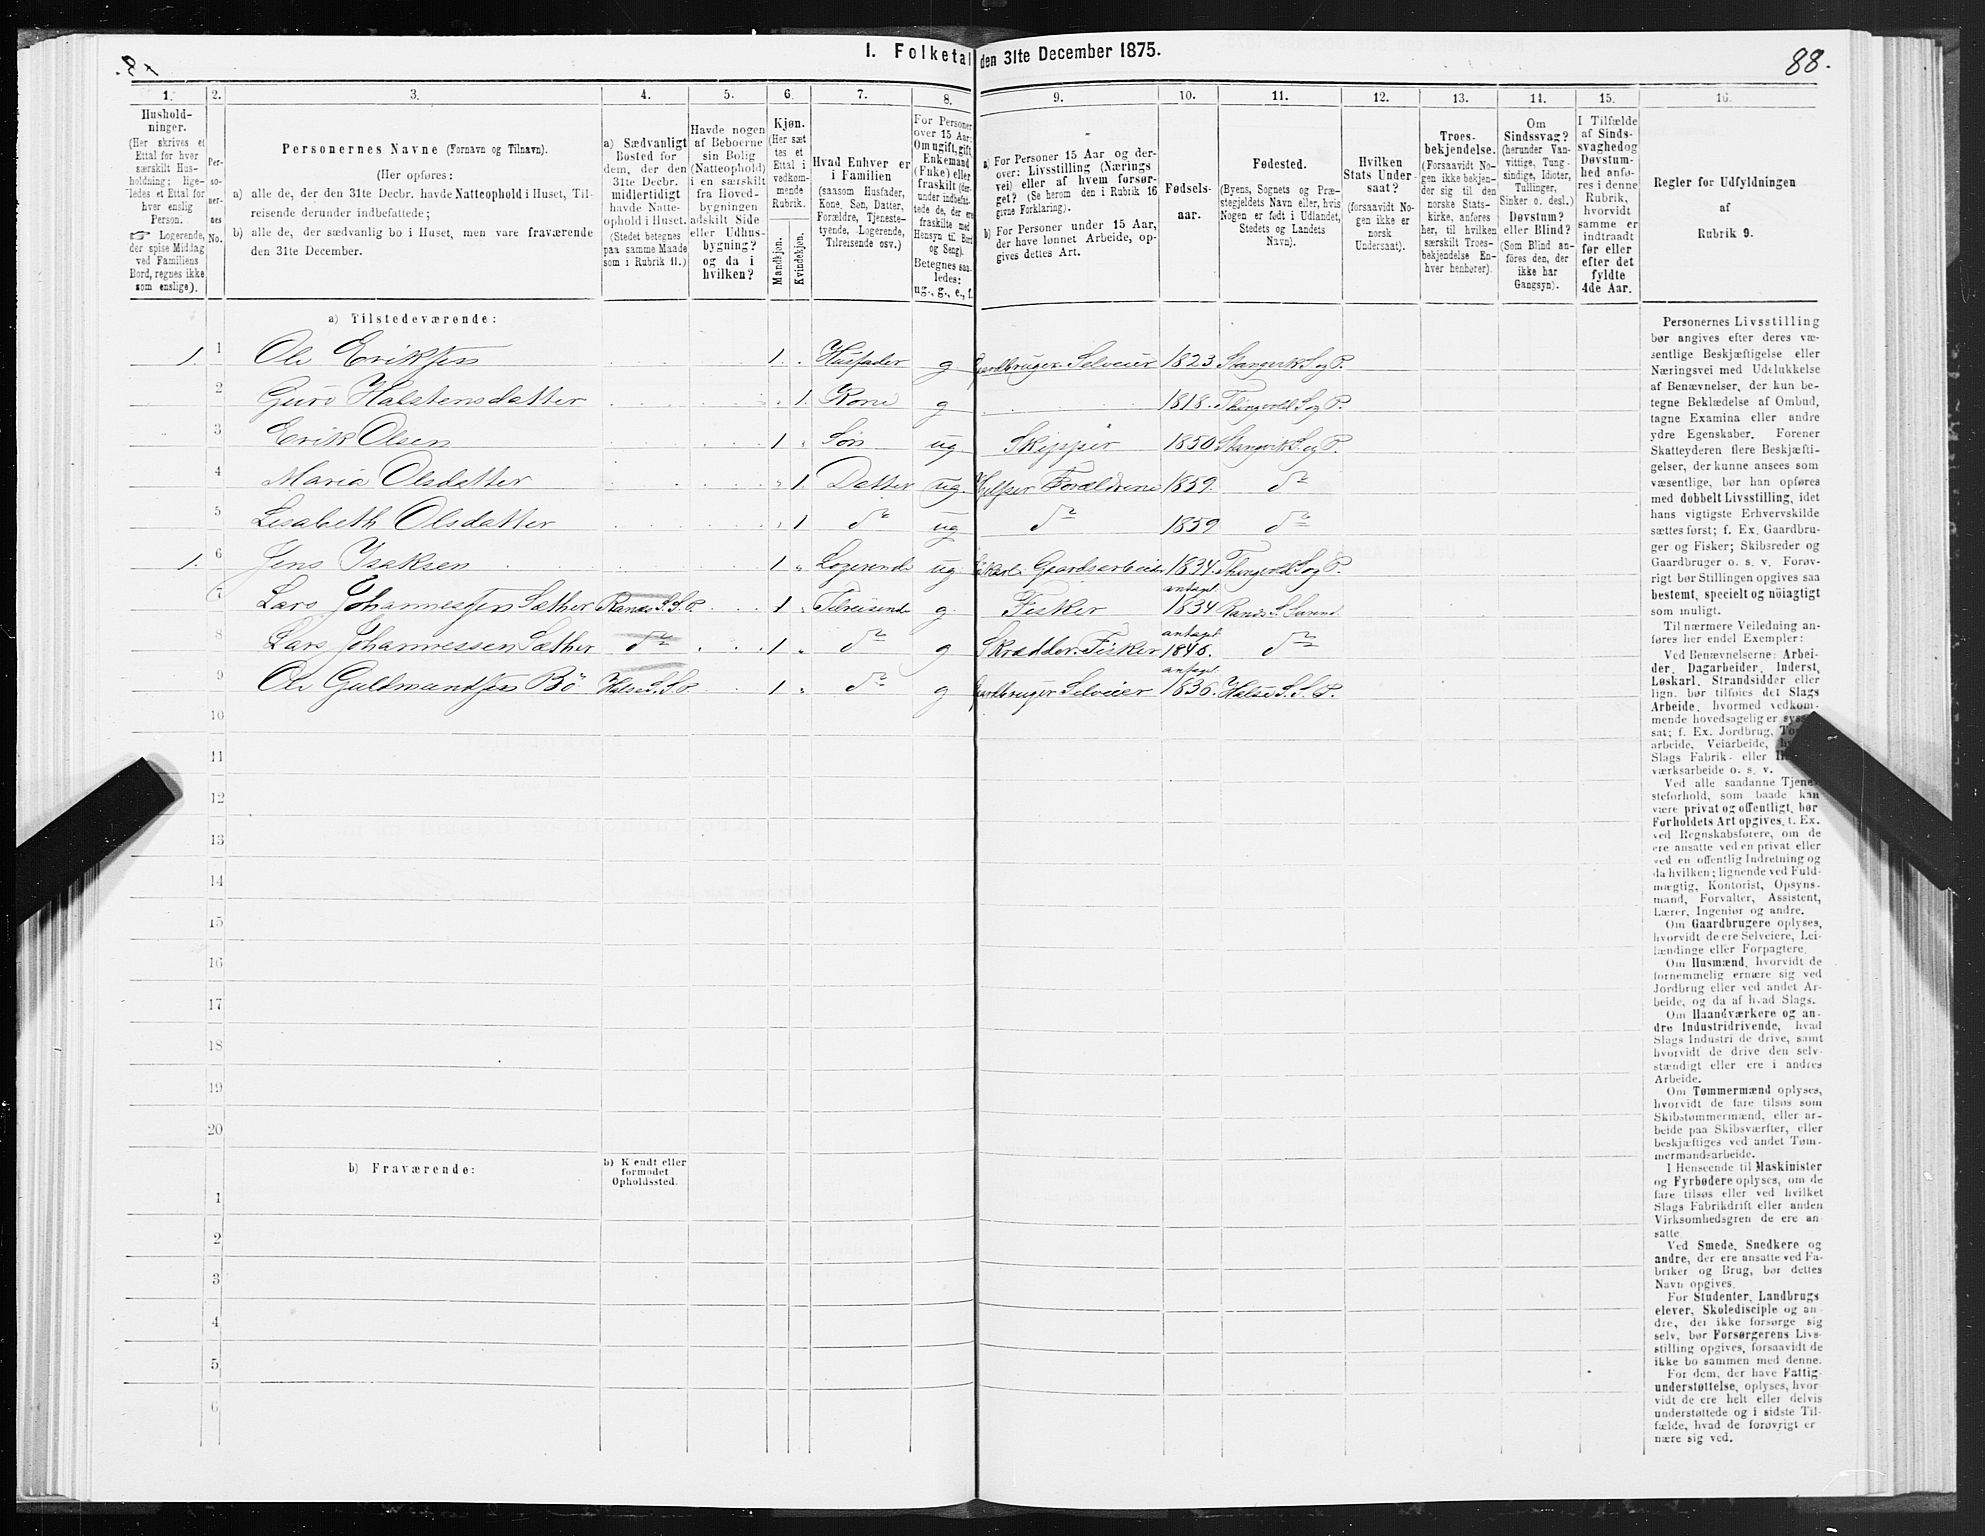 I. Folketal den 31te December 1875.
88.
1. 2. 3. 4. 5. 6. 7. 8. 9. 10. 11. 12. 13. 14. 15. 16.
Hushold-
ninger.
(Her skrives et
Ettal for hver
særskilt Hus-
holdning; lige-
ledes et Ettal for
hver enslig
Person.
☞ Logerende,
der spise Middag
ved Familiens
Bord, regnes ikke
som enslige).
Per-
so-
ner-
nes
No.
Personernes Navne (Fornavn og Tilnavn).
(Her opføres:
a) alle de, der den 31te Decbr. havde Natteophold i Huset, Til-
reisende derunder indbefattede;
b) alle de, der sædvanlig bo i Huset, men vare fraværende
den 31te December.
a) Sædvanligt
Bosted for
dem, der den
31te Decbr.
midlertidigt
havde Natte-
ophold i Huset.
(Stedet betegnes
paa samme Maade
som i Rubrik 11.)
Havde nogen
af Beboerne
sin Bolig
(Natteophold)
i en særskilt
fra Hoved-
bygningen
adskilt Side
eller Udhus-
bygning?
og da i
hvilken?
Kjøn.
(Her sæt
tes et
Ettal i
vedkom-
mende
Rubrik.
Mandkjøn.
Kvindekjøn.
Hvad Enhver er
i Familien
(saasom Husfader,
Kone, Søn, Datter,
Forældre, Tjeneste-
tyende, Logerende,
Tilreisende osv.)
For Personer
over 15 Aar:
Om ugift, gift,
Enkemand
(Enke) eller
fraskilt (der-
under indbefat-
tede de, der ere
fraskilte med
Hensyn til Bord
og Seng).
Betegnes saa-
ledes:
ug., g., e., f.
a) For Personer 15 Aar og der-
over: Livsstilling (Nærings
vei) eller af hvem forsør-
get? (Se herom den i Rubrik 16
givne Forklaring).
b) For Personer under 15 Aar,
der have lønnet Arbeide, op-
gives dettes Art.
Fødsels-
aar.
Fødested.
(Byens, Sognets og Præ-
stegjeldets Navn eller, hvis
Nogen er født i Udlandet,
Stedets og Landets
Navn).
Hvilken
Stats Under
saat?
(forsaavidt No-
gen ikke er
norsk
Undersaat).
Troes-
bekjendelse.
(Forsaavidt No-
gen ikke bekjen-
der sig til den
norske Stats-
kirke, anføres
her, til hvilken
særskilt Troes-
bekjendelse En-
hver henhører).
Om
Sindssvag?
(herunder Van-
vittige, Tung-
sindige, Idioter,
Tullinger,
Sinker o. desl.)
Døvstum?
eller Blind?
(Som Blind an-
føres den, der
ikke har
Gangsyn).
I Tilfælde
af Sinds-
svaghed og
Døvstum-
hed anfø-
res i denne
Rubrik,
hvorvidt
samme er
indtraadt
før eller
efter det
fyldte
4de Aar.
Regler for Udfyldningen
af
Rubrik 9.
a) Tilstedeværende:
1. 1 Ole Eriksen 1 Husfader g Gaardbruger Selveier 1823 Stangvik S. og P.
2 Guro Halstensdatter 1. Kone g 1818. Thingvold S. og P.
3 Erik Olsen 1 Søn ug Skipper 1850 Stangvik S. og P.
4 Maria Olsdatter 1. Datter ug. Hjelper Forældrene 1859. do
5 Lisabeth Olsdatter 1 do ug do 1859 do
1. 6 Jens Isaksen 1 Logerende ug Gaardsarbeider 1834. Thingvold S. og P.
7 Lars Johannessen Sæther Ranæs S. S. P. 1 Tilreisende g. Fisker antagl. 1834 Ranæs S. Surend.
8 Lars Johannessen Sæther do 1 do g Skrædder. Fisker antagl. 1846. do
9 Ole Guldmundsen Bö Halse S. S. P. 1 do g Gaardbruger Selveier antagl. 1836. Halse S. S. P.
10
11
12
13
14
15
16
17
18
19
20
b) Fraværende:
b) Kjendt eller
formodet
Opholdssted.
1
2
3
4
5
6
Personernes Livsstilling
bør angives efter deres væ-
sentlige Beskjæftigelse eller
Næringsvei med Udelukkelse
af Benævnelser, der kun be-
tegne Beklædelse af Ombud,
tagne Examina eller andre
ydre Egenskaber. Forener
Skatteyderen flere Beskjæfti-
gelser, der kunne ansees som
væsentlige, bør han opføres
med dobbelt Livsstilling, idet
hans vigtigste Erhvervskilde
sættes først; f. Ex. Gaardbru-
ger og Fisker; Skibsreder og
Gaardbruger o. s. v. Forøv-
rigt bør Stillingen opgives saa
bestemt, specielt og nöiagtigt
som muligt.
Til nærmere Veiledning an-
føres her endel Exempler:
Ved Benævnelserne: Arbei-
der, Dagarbeider, Inderst,
Løskarl, Strandsidder eller
lign. bør tilføies det Slags
Arbeide, hvormed vedkom-
mende hovedsagelig er syssel-
sat; f. Ex. Jordbrug,
arbeide, Veiarbeide,
Slags Fabrik- eller
værksarbeide o. s. v.
Ved alle saadanne Tjene-
steforhold, som baade kan
være privat og offentligt, bør
Forholdets Art opgives, t. Ex.
ved Regnskabsførere, om de
ere ansatte ved en privat eller
ved en offentlig Indretning og
da hvilken; lignende ved Fuld-
mægtig, Kontorist, Opsyns-
mand, Forvalter, Assistent,
Lærer, Ingeniør og andre.
Om Gaardbrugere oplyses,
hvorvidt de ere Selveiere, Lei-
lændinge eller Forpagtere.
Om Husmænd, hvorvidt de
fornemmelig ernære sig ved
Jordbrug eller ved andet Ar-
beide, og da af hvad Slags.
Om Haandværkere og an-
dre Industridrivende, hvad
Slags Industri de drive, samt
hvorvidt de drive den selv-
stændigt eller ere i andres
Arbeide.
Om Tømmermænd oplyses,
hvorvidt de fare tilsøs som
Skibstømmermænd, eller ar-
beide paa Skibsværfter, eller
beskjæftiges ved andet Tøm-
mermandsarbeide.
I Henseende til Maskinister
og Fyrbødere oplyses, om de
fare tilsøs eller ved hvilket
Slags Fabrikdrift eller anden
Virksomhedsgren de ere an-
satte.
Ved Smede, Snedkere og
andre, der ere ansatte ved Fa-
briker og Brug, bør dettes
Navn opgives.
For Studenter, Landbrugs
elever, Skoledisciple og an-
dre, der ikke forsørge sig
selv, bør Forsørgerens Livs-
stilling opgives, forsaavidt de
ikke bo sammen med denne.
For dem, der have Fattig-
understøttelse, oplyses, hvor-
vidt de ere helt eller delvis
understøttede og i sidste Til-
fælde, hvad de forøvrigt er
nære sig ved.